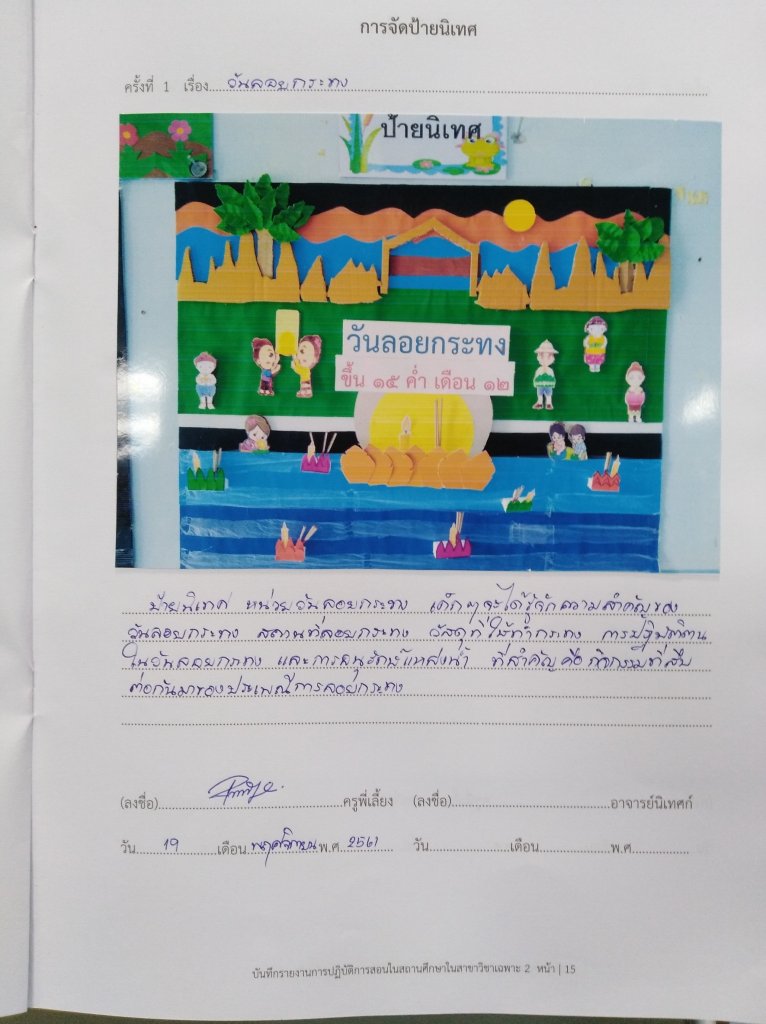 การจัดป้ายนิเทศ
ครั้งที่ 1 เรื่อง วันลอยกระทง
ป้ายนิเทศ
วันลอยกระทง
ขึ้น ๑๕ ค่ำ เดือน ๑๒
ป้ายนิเทศ หน่วยวันลอยกระทง เด็กๆจะได้รู้จักความสำคัญของ
วันลอยกระทง สถานที่ลอยกระทง วัสดุที่ใช้ทำกระทง การปฏิบัติตน
ในวันลอยกระทง และการอนุรักษ์แหล่งน้ำ ที่สำคัญคือกิจกรรมที่สืบ
ต่อกันมาของประเพณีการลอยกระทง
(ลงชื่อ) ครูพี่เลี้ยง (ลงชื่อ) อาจารย์นิเทศก์
วัน 19 เดือน พฤศจิกายน พ.ศ. 2561 วัน เดือน พ.ศ.
บันทึกรายงานการปฏิบัติการสอนในสถานศึกษาในสาขาวิชาเฉพาะ 2 หน้า | 15